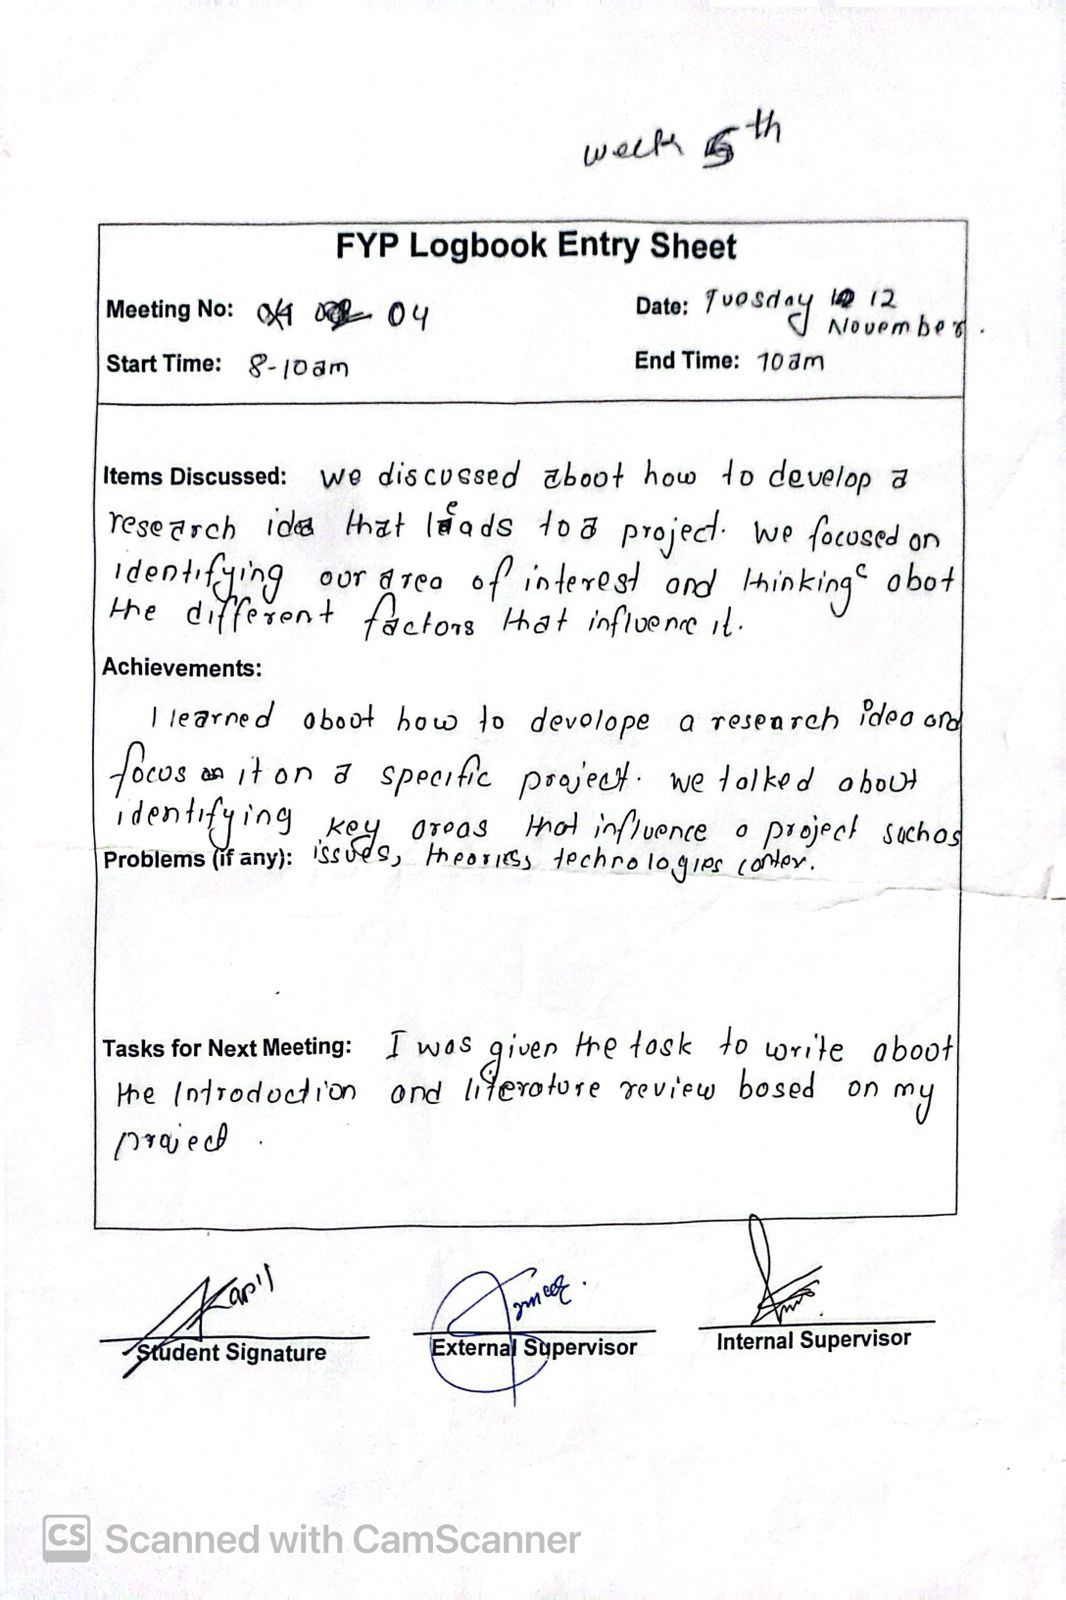 week 5th
FYP Logbook Entry Sheet
Meeting No: 04
Date: Tuesday 12
November.
Start Time: 8-10am
End Time: 10am
Items Discussed: we discussed aboot how to develop a
research idea that leads to a project. we focused on
identifying our area of interest and thinking abot
the different factors that influence it.
Achievements:
I learned aboot how to develope a research idea and
focus it on a specific project. we talked about
identifying key areas that influence a project such as
Problems (if any): issues, theories, technologies
Tasks for Next Meeting: I was given the task to write aboot
the Introduction and literature review based on my
project.
Kapil
Student Signature
External Supervisor
Internal Supervisor
CS Scanned with CamScanner